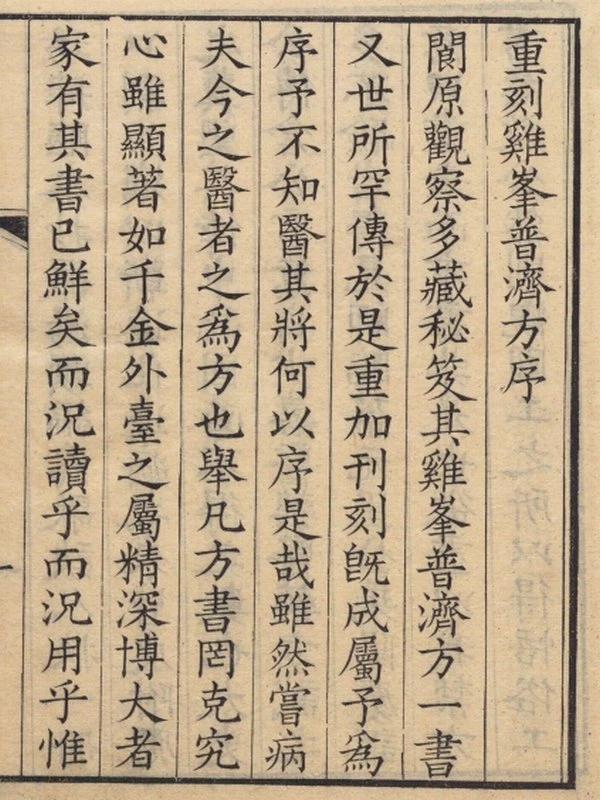 重刻雞峯普濟方序
閬原觀察多藏秘笈其雞峯普濟方一書
又世所罕傳於是重加刊刻旣成屬予爲
序予不知醫其將何以序是哉雖然嘗病
夫今之醫者之爲方也舉凡方書罔克究
心雖顯著如千金外臺之屬精深博大者
家有其書已鮮矣而況讀乎而況用乎惟